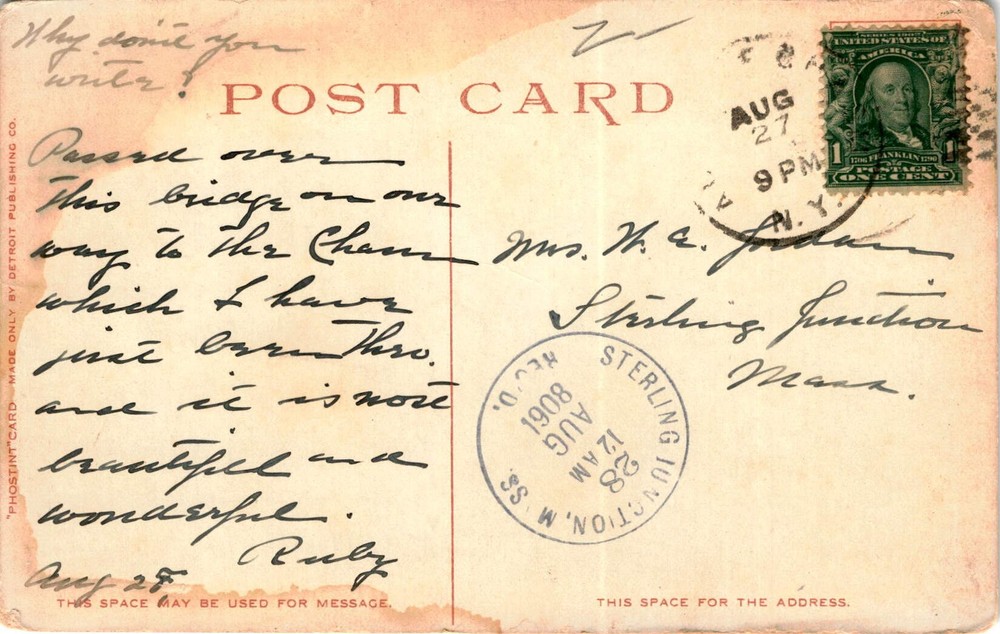 Why don't you
write?
POST CARD
Passed over
this bridge on our
way to the Chasm
which I have
just been thro.
and it is most
beautifull and
wonderful.
Ruby
Aug 27
THIS SPACE MAY BE USED FOR MESSAGE.
"PHOSTINT" CARD MADE ONLY BY DETROIT PUBLISHING CO.
AUG
27
9 PM
N.Y.
SERIES 1902
UNITED STATES OF
AMERICA
1 1
1706 FRANKLIN 1790
POSTAGE
ONE CENT
Mrs. W. E. Jordan
Sterling Junction
Mass.
STERLING JUNCTION, MASS.
REC'D.
28
12 AM
AUG
1908
THIS SPACE FOR THE ADDRESS.